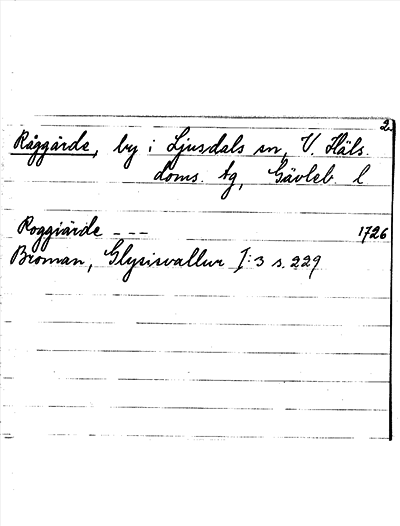 2
Råggärde, by i Ljusdals sn, V. Häls.
doms. tg, Gävleb. l
Roggiärde --- 1726
Broman, Glysisvallur I:3 s. 229